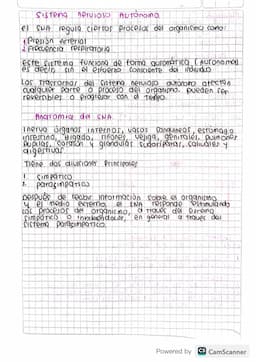 Sistema nervioso Autónomo
el SNA regula ciertos procesos del organismo como:
1 Presión Arterial
2 Frecuencia respiratoria
Este sistema funciona de forma automática (Autónoma)
es decir sin el esfuerzo consciente del individuo
Los trastornos del sistema nervioso autónomo afectan
cualquier parte o proceso del organismo. pueden ser
reversibles o progresar con el tiempo.
Anatomia del SNA
Inerva órganos internos, vasos sanguineos, estómago
intestino, hígado, riñones, vejiga, genitales, pulmones
pupilas, corazón y glándulas sudoríparas, salivales y
digestivas.
Tiene dos divisiones Principales
1. simpático
2. parasimpático
Después de recibir información sobre el organismo
y el medio externo, el SNA responde estimulando
los procesos del organismo, a través del sistema
simpático o inhibiéndolos, en general a través del
sistema parasimpático.
Powered by CS CamScanner